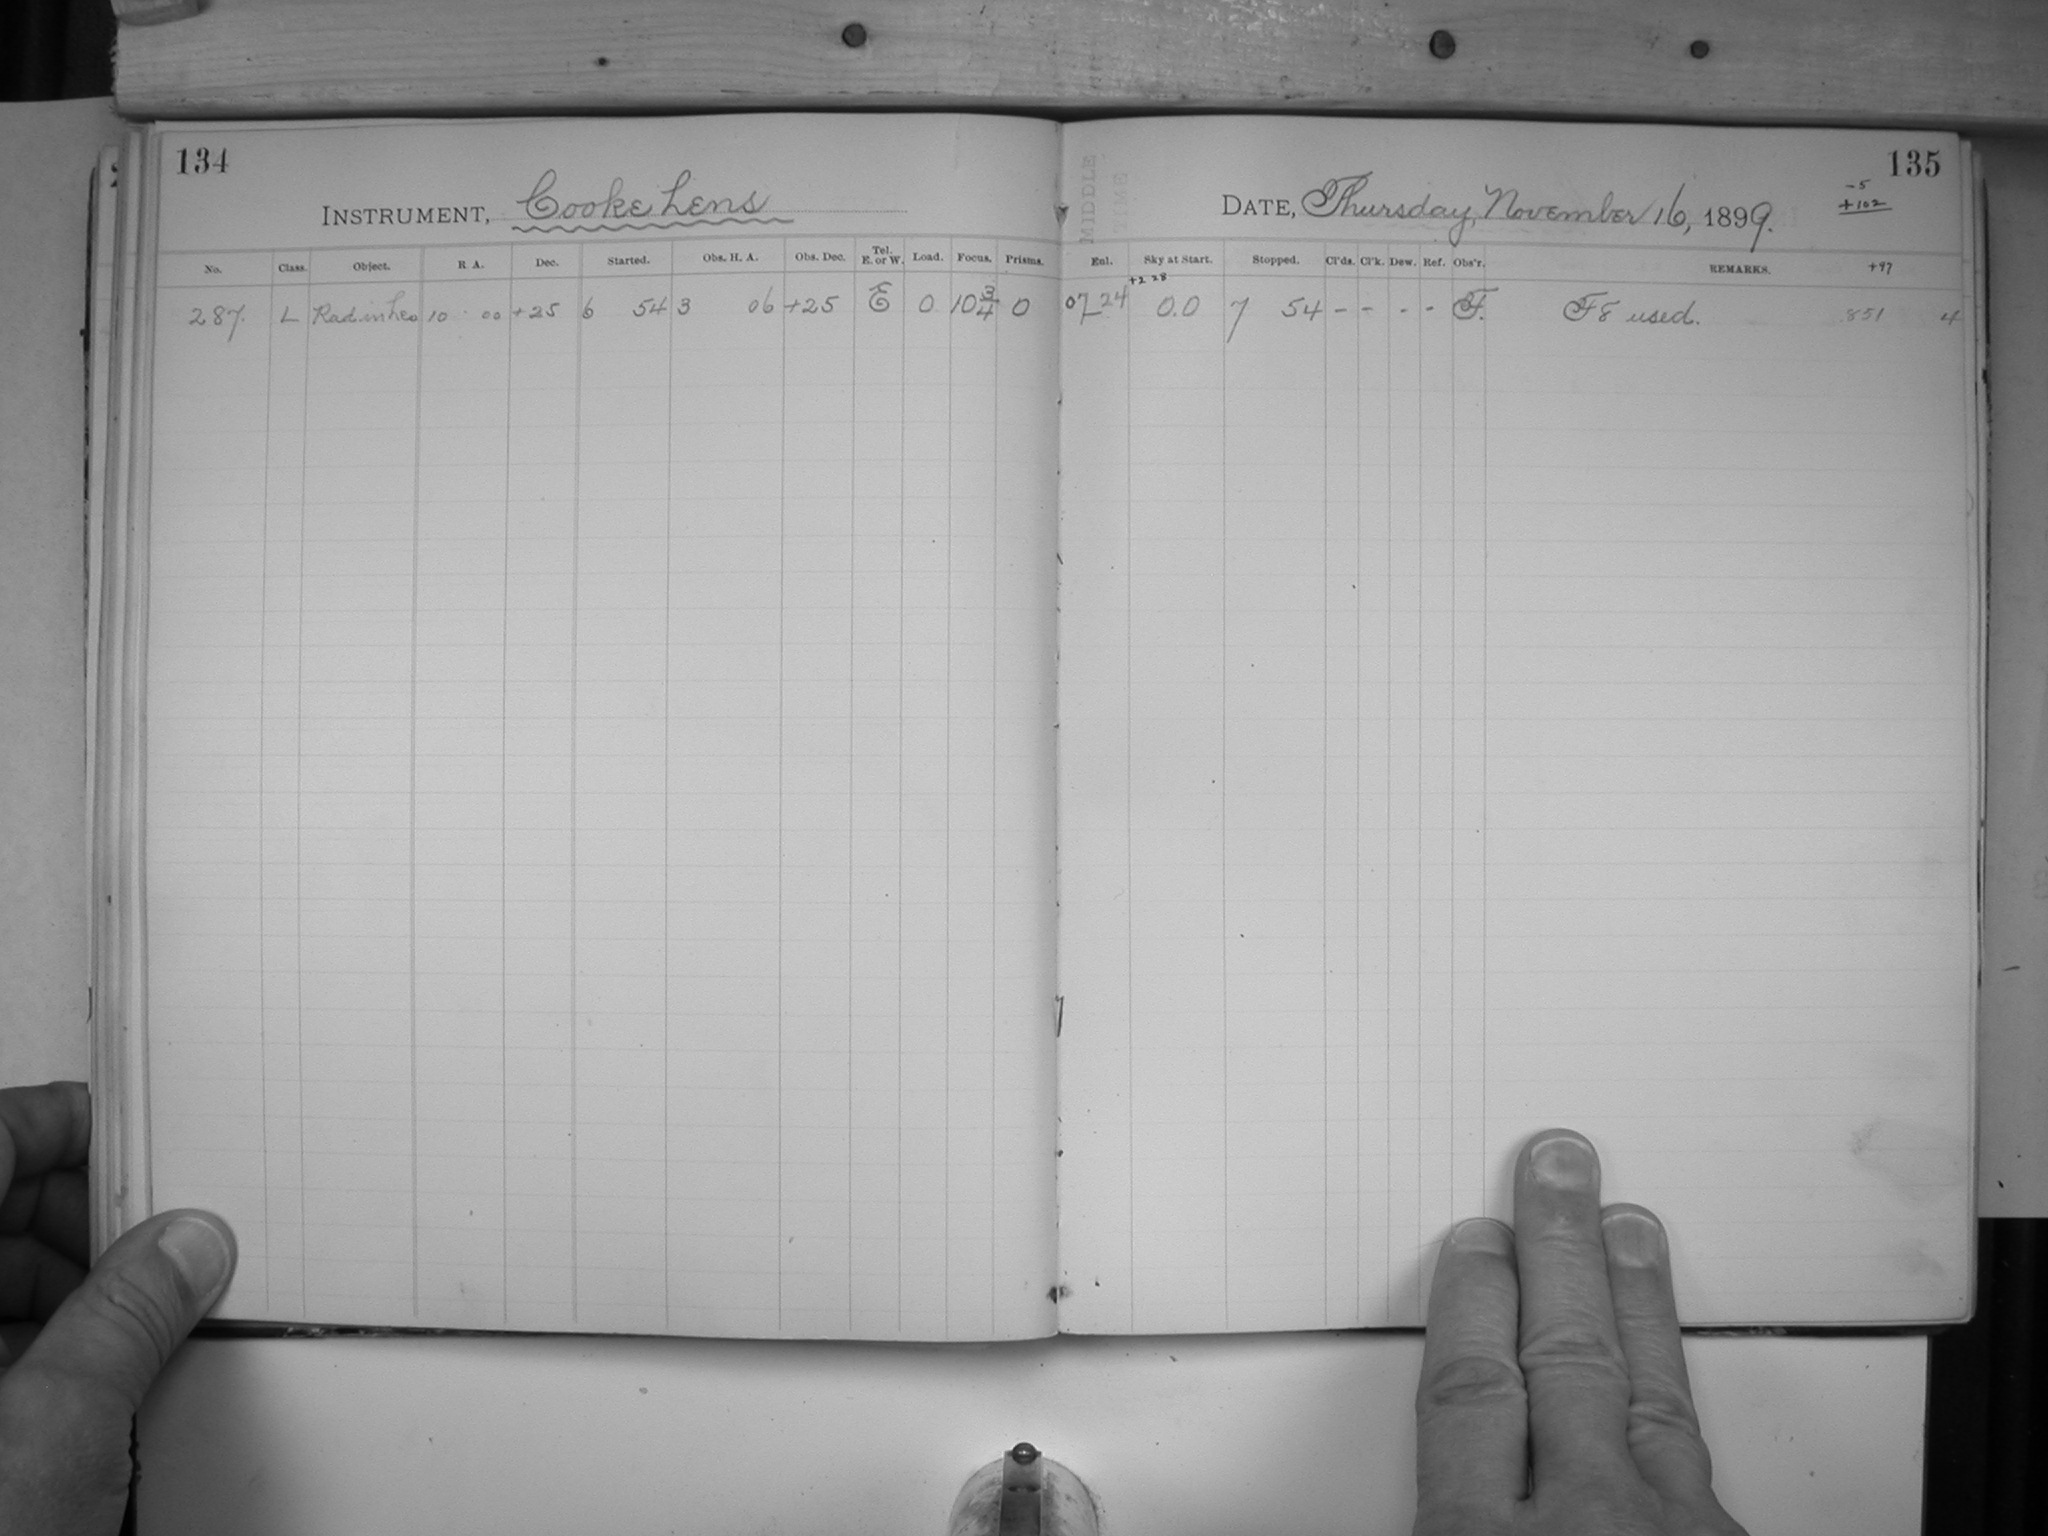 134
INSTRUMENT, Cooke Lens
No. Class. Object. R. A. Dec. Started. Obs. H. A. Obs. Dec. Tel. E. or W. Load. Focus. Prisms.
287. L Rad in Leo 10 00 +25 6 54 3 06 +25 E 0 10 3/4 0
135
MIDDLE
TIME
-5
+102
DATE, Thursday, November 16, 1899.
Enl. Sky at Start. Stopped. Cl'ds. Cl'k. Dew. Ref. Obs'r. REMARKS. +97
+2 28
07 24 0.0 7 54 - - - - F. F8 used. 851 4